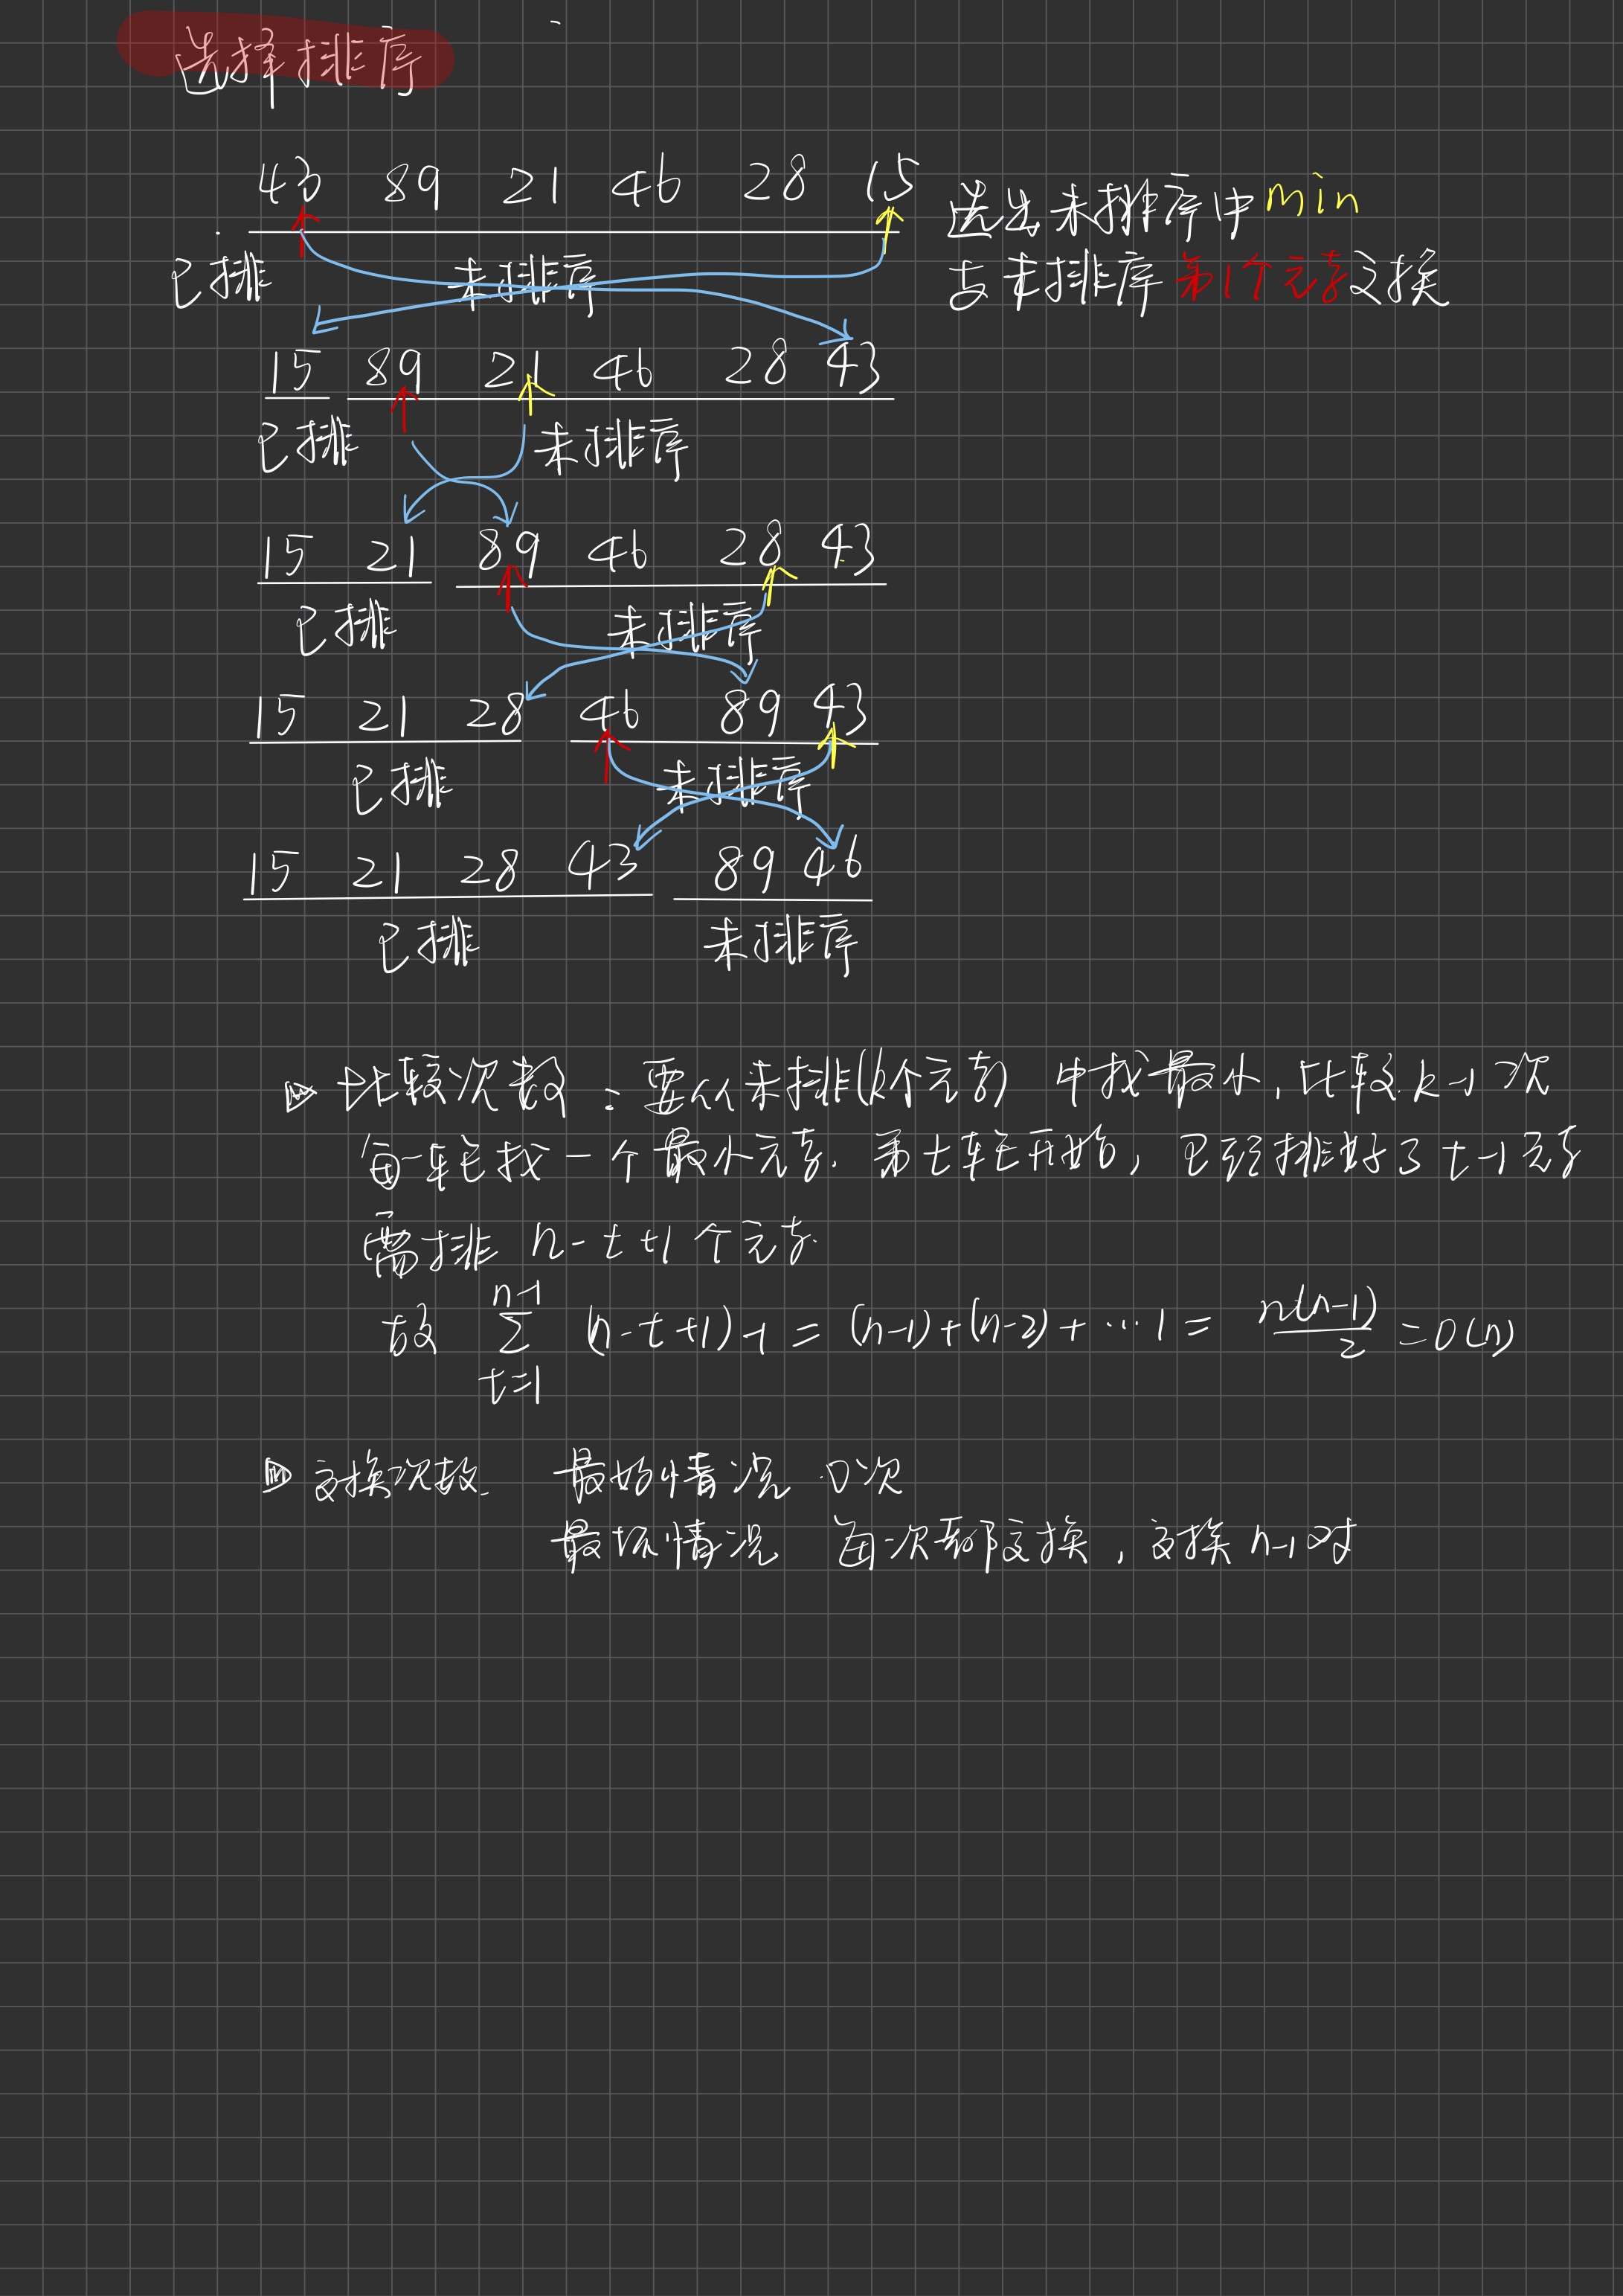 选择排序
43 89 21 46 28 15
选出未排序中min
与未排序第1个元素交换
已排 未排序
15 89 21 46 28 43
已排 未排序
15 21 89 46 28 43
已排 未排序
15 21 28 46 89 43
已排 未排序
15 21 28 43 89 46
已排 未排序
比较次数：要从未排(k个元素) 中找最小，比较k-1次
每一轮找一个最小元素. 第t轮开始，已经排好了t-1元素
需排 n-t+1个元素.
故 \sum_{t=1}^{n-1} (n-t+1)-1 = (n-1)+(n-2)+…1 = \frac{n(n-1)}{2} = O(n)
交换次数. 最好情况 0次
最坏情况 每次都交换，交换n-1对